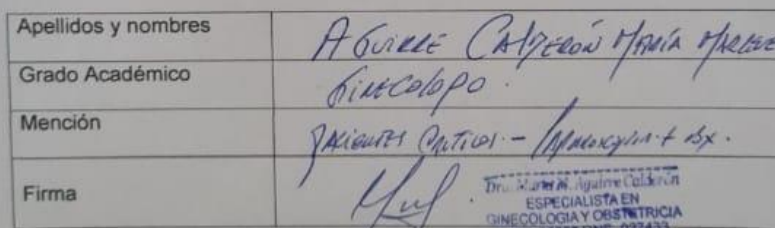 Apellidos y nombres AGUIRRE CALDERÓN MARÍA
Grado Académico GINECOLOGO.
Mención PACIENTES CRITICOS -
Firma
Aguirre Calderón
ESPECIALISTA EN
GINECOLOGIA Y OBSTETRICIA